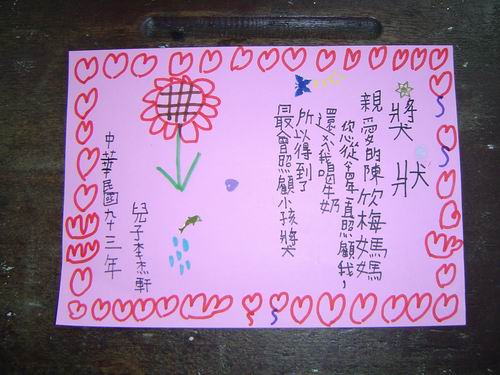 獎狀
親愛的陳欣梅媽媽
您從年直照顧我，
還我喝牛奶
所以得到了
最會照顧小孩獎
兒子李杰軒
中華民國九十三年